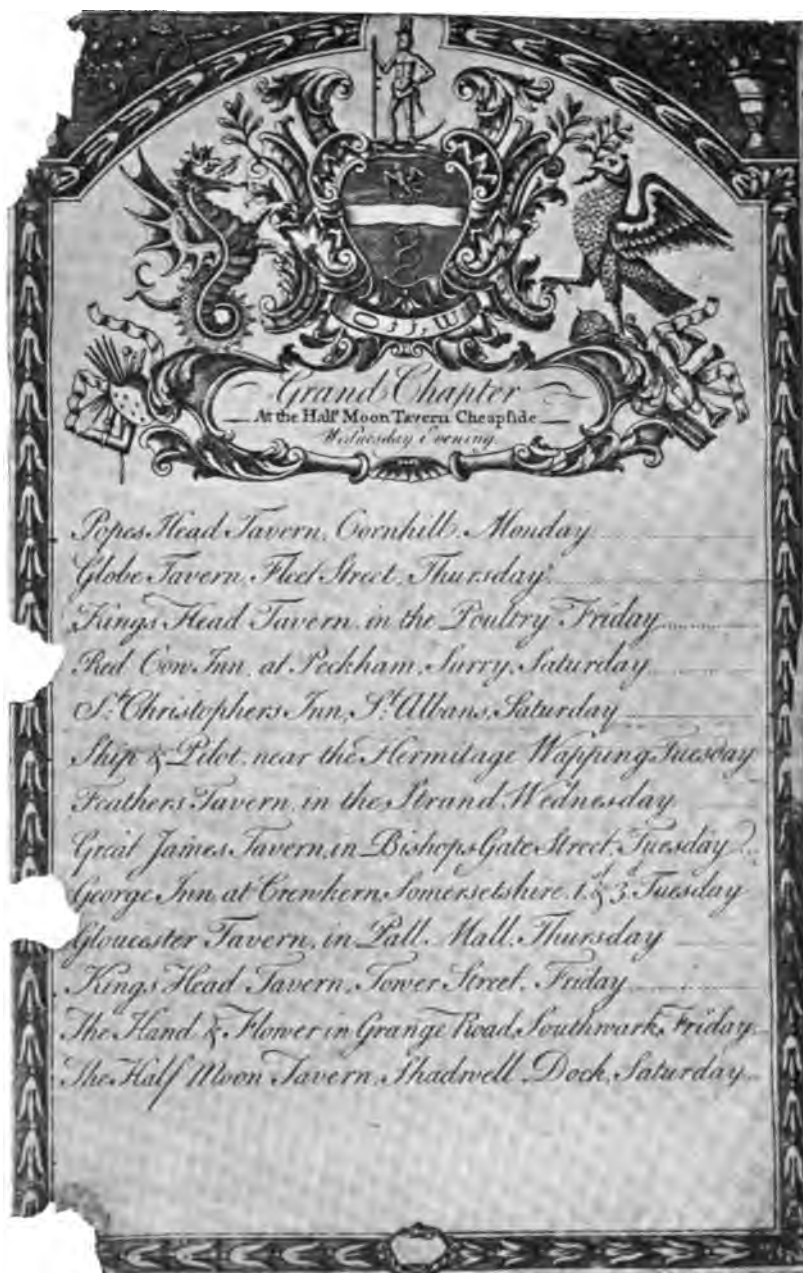 Grand Chapter
At the Half Moon Tavern Cheapſide
Wednesday Evening.
Popes Head Tavern, Cornhill, Monday
Globe Tavern, Fleet Street, Thursday
Kings Head Tavern, in the Poultry Friday
Red Cow Inn, at Peckham, Surry, Saturday
St. Christophers Inn, St. Albans, Saturday
Ship & Pilot, near the Hermitage Wapping, Tuesday
Feathers Tavern, in the Strand, Wednesday
Great James Tavern, in Bishops Gate Street, Tuesday
George Inn, at Crewkern, Somersetshire, 1st & 3d Tuesday
Gloucester Tavern, in Pall Mall, Thursday
Kings Head Tavern, Tower Street, Friday
The Hand & Flower in Grange Road, Southwark, Friday
The Half Moon Tavern, Shadwell Dock, Saturday